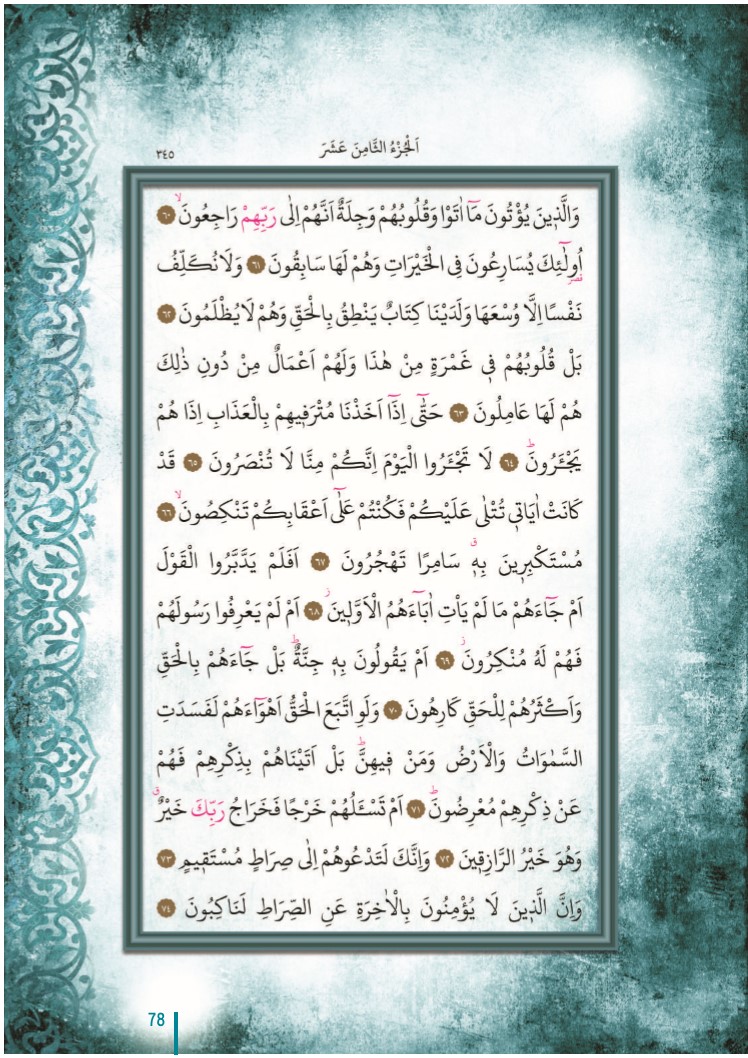 اَلْجُزْءُ الثَّامِنَ عَشَرَ
٣٤٥
وَالَّذ۪ينَ يُؤْتُونَ مَٓا اٰتَوْا وَقُلُوبُهُمْ وَجِلَةٌ اَنَّهُمْ اِلٰى رَبِّهِمْ رَاجِعُونَۙ ﴿٦٠﴾
اُو۬لٰٓئِكَ يُسَارِعُونَ فِي الْخَيْرَاتِ وَهُمْ لَهَا سَابِقُونَ ﴿٦١﴾ وَلَا نُكَلِّفُ
نَفْسًا اِلَّا وُسْعَهَا وَلَدَيْنَا كِتَابٌ يَنْطِقُ بِالْحَقِّ وَهُمْ لَا يُظْلَمُونَ ﴿٦٢﴾
بَلْ قُلُوبُهُمْ ف۪ي غَمْرَةٍ مِنْ هٰذَا وَلَهُمْ اَعْمَالٌ مِنْ دُونِ ذٰلِكَ
هُمْ لَهَا عَامِلُونَ ﴿٦٣﴾ حَتّٰٓى اِذَٓا اَخَذْنَا مُتْرَف۪يهِمْ بِالْعَذَابِ اِذَا هُمْ
يَجْـَٔرُونَۜ ﴿٦٤﴾ لَا تَجْـَٔرُوا الْيَوْمَ اِنَّكُمْ مِنَّا لَا تُنْصَرُونَ ﴿٦٥﴾ قَدْ
كَانَتْ اٰيَات۪ي تُتْلٰى عَلَيْكُمْ فَكُنْتُمْ عَلٰٓى اَعْقَابِكُمْ تَنْكِصُونَۙ ﴿٦٦﴾
مُسْتَكْبِر۪ينَ بِه۪ۗ سَامِرًا تَهْجُرُونَ ﴿٦٧﴾ اَفَلَمْ يَدَّبَّرُوا الْقَوْلَ
اَمْ جَٓاءَهُمْ مَا لَمْ يَأْتِ اٰبَٓاءَهُمُ الْاَوَّل۪ينَۘ ﴿٦٨﴾ اَمْ لَمْ يَعْرِفُوا رَسُولَهُمْ
فَهُمْ لَهُ مُنْكِرُونَۘ ﴿٦٩﴾ اَمْ يَقُولُونَ بِه۪ جِنَّةٌۜ بَلْ جَٓاءَهُمْ بِالْحَقِّ
وَاَكْثَرُهُمْ لِلْحَقِّ كَارِهُونَ ﴿٧٠﴾ وَلَوِ اتَّبَعَ الْحَقُّ اَهْوَٓاءَهُمْ لَفَسَدَتِ
السَّمٰوَاتُ وَالْاَرْضُ وَمَنْ ف۪يهِنَّۜ بَلْ اَتَيْنَاهُمْ بِذِكْرِهِمْ فَهُمْ
عَنْ ذِكْرِهِمْ مُعْرِضُونَۜ ﴿٧١﴾ اَمْ تَسْـَٔلُهُمْ خَرْجًا فَخَرَاجُ رَبِّكَ خَيْرٌۗ
وَهُوَ خَيْرُ الرَّازِق۪ينَ ﴿٧٢﴾ وَاِنَّكَ لَتَدْعُوهُمْ اِلٰى صِرَاطٍ مُسْتَق۪يمٍ ﴿٧٣﴾
وَاِنَّ الَّذ۪ينَ لَا يُؤْمِنُونَ بِالْاٰخِرَةِ عَنِ الصِّرَاطِ لَنَاكِبُونَ ﴿٧٤﴾
78